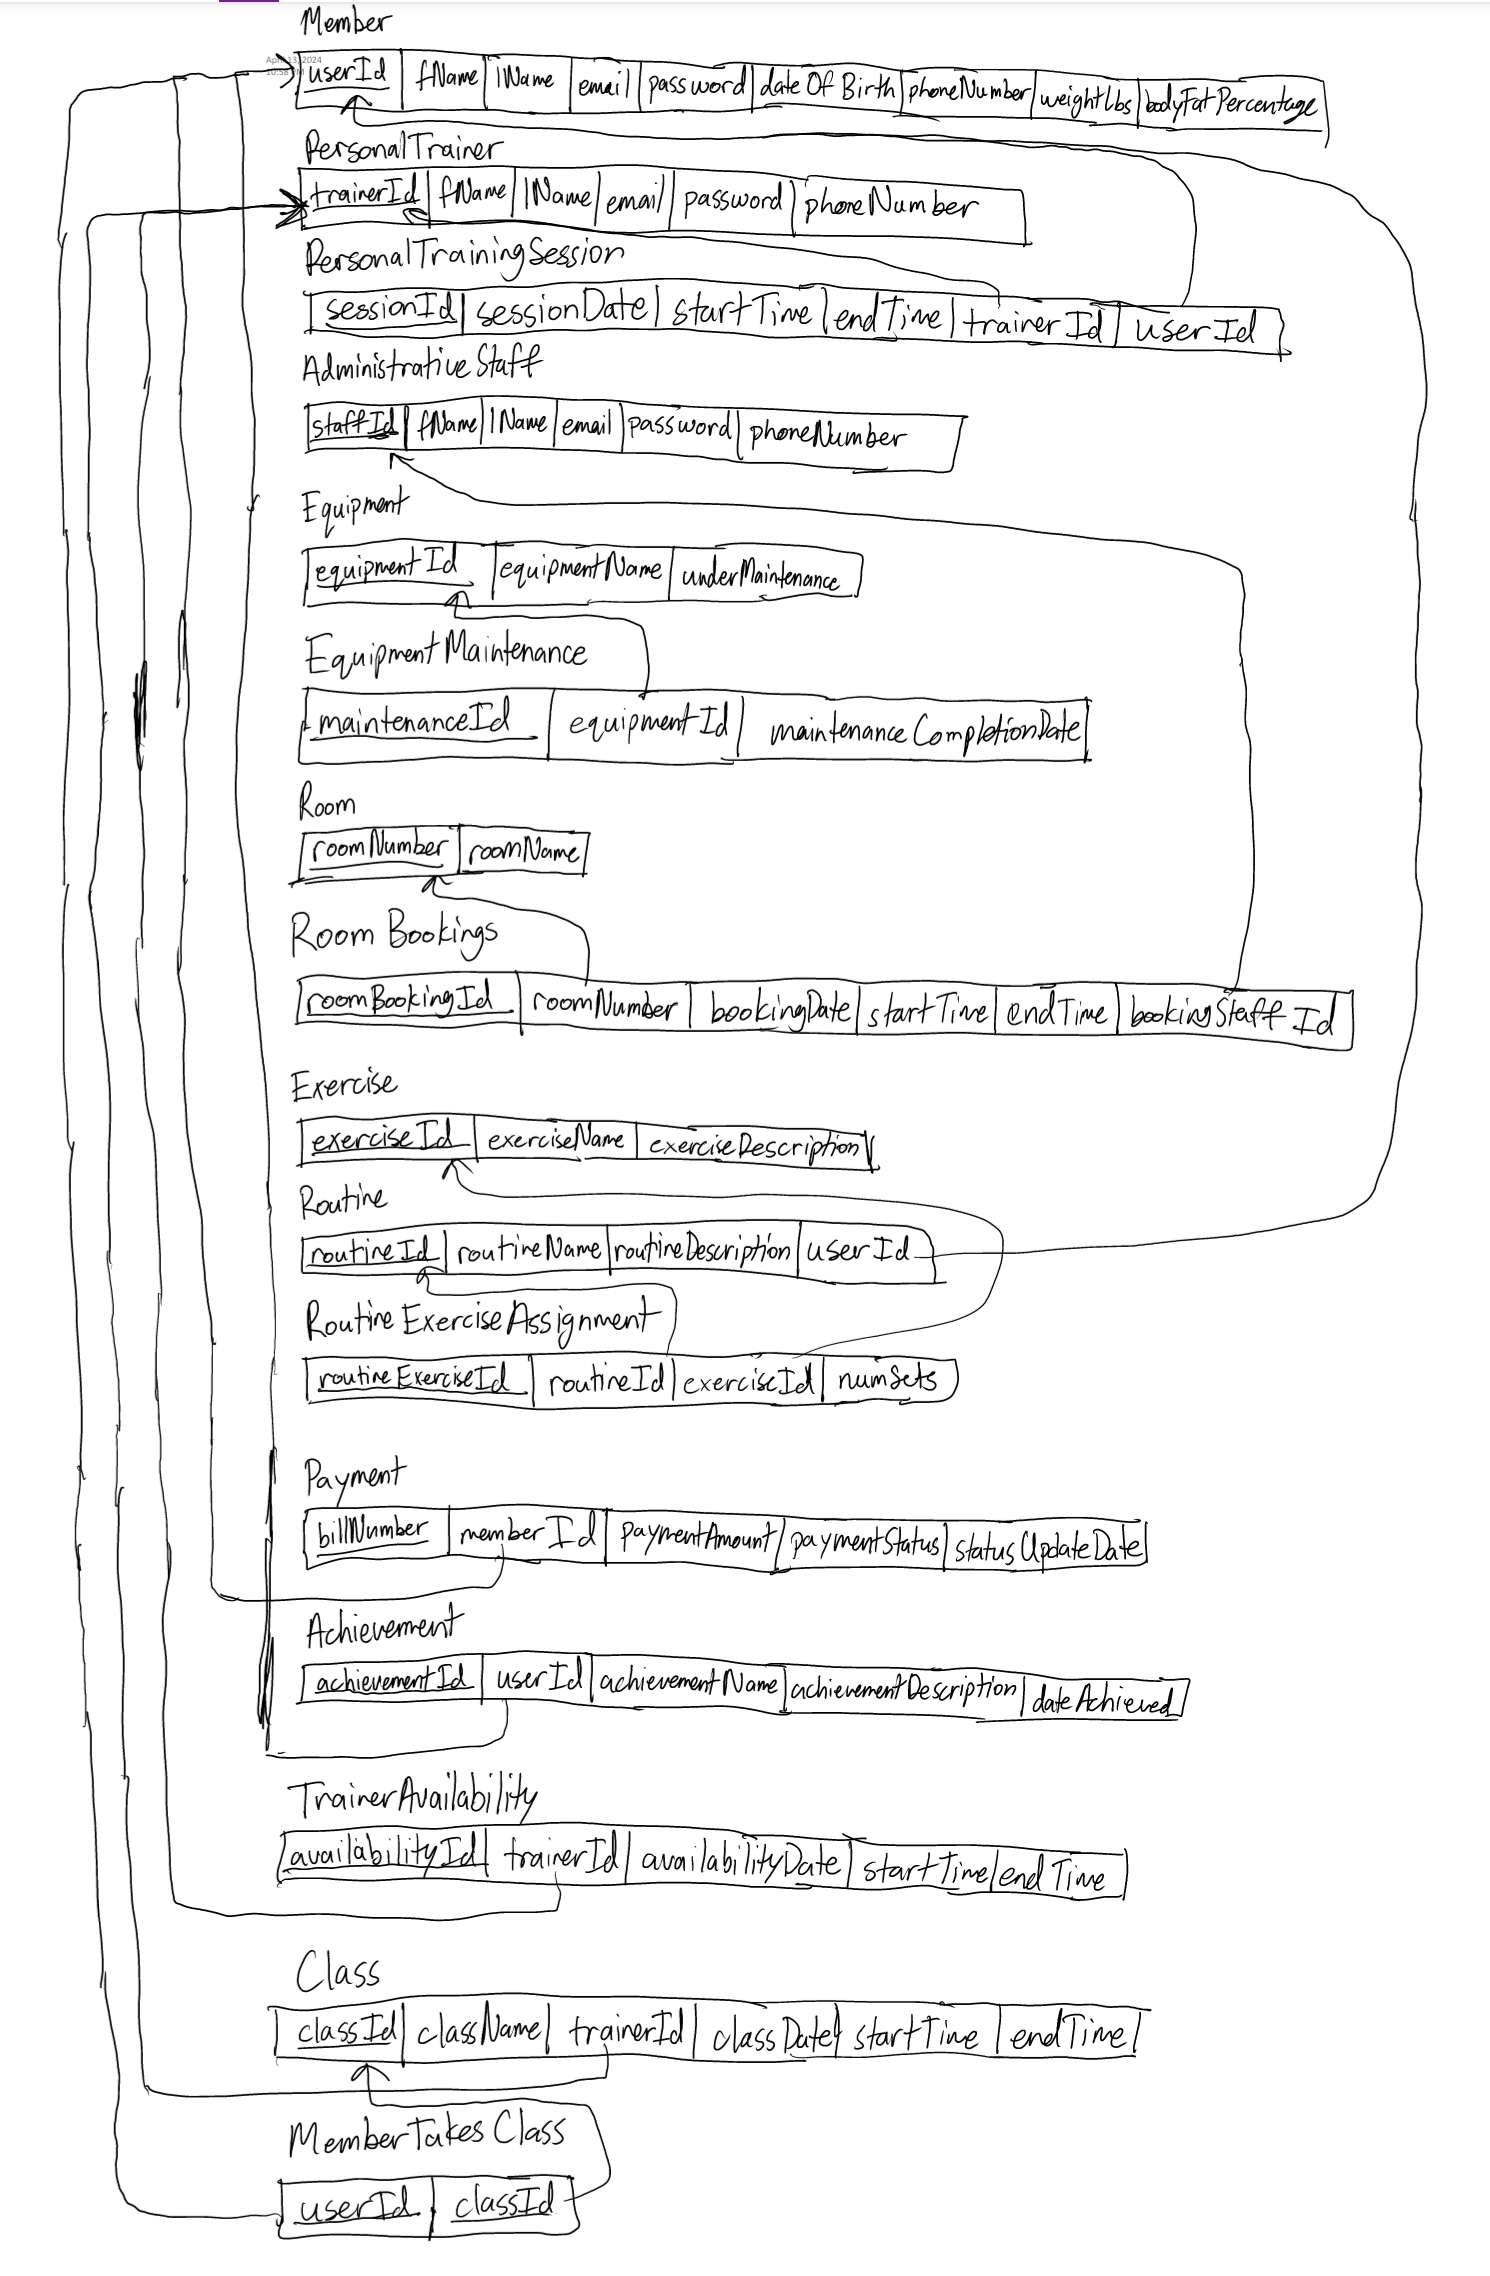 Member
April 13, 2024
10:58 PM
userId fName lName email password dateOfBirth phoneNumber weightLbs bodyFatPercentage
PersonalTrainer
trainerId fName lName email password phoneNumber
PersonalTrainingSession
sessionId sessionDate startTime endTime trainerId userId
AdministrativeStaff
staffId fName lName email password phoneNumber
Equipment
equipmentId equipmentName underMaintenance
EquipmentMaintenance
maintenanceId equipmentId maintenanceCompletionDate
Room
roomNumber roomName
Room Bookings
roomBookingId roomNumber bookingDate startTime endTime bookingStaffId
Exercise
exerciseId exerciseName exerciseDescription
Routine
routineId routineName routineDescription userId
RoutineExerciseAssignment
routineExerciseId routineId exerciseId numSets
Payment
billNumber memberId paymentAmount paymentStatus statusUpdateDate
Achievement
achievementId userId achievementName achievementDescription dateAchieved
TrainerAvailability
availabilityId trainerId availabilityDate startTime endTime
Class
classId className trainerId classDate startTime endTime
MemberTakesClass
userId classId